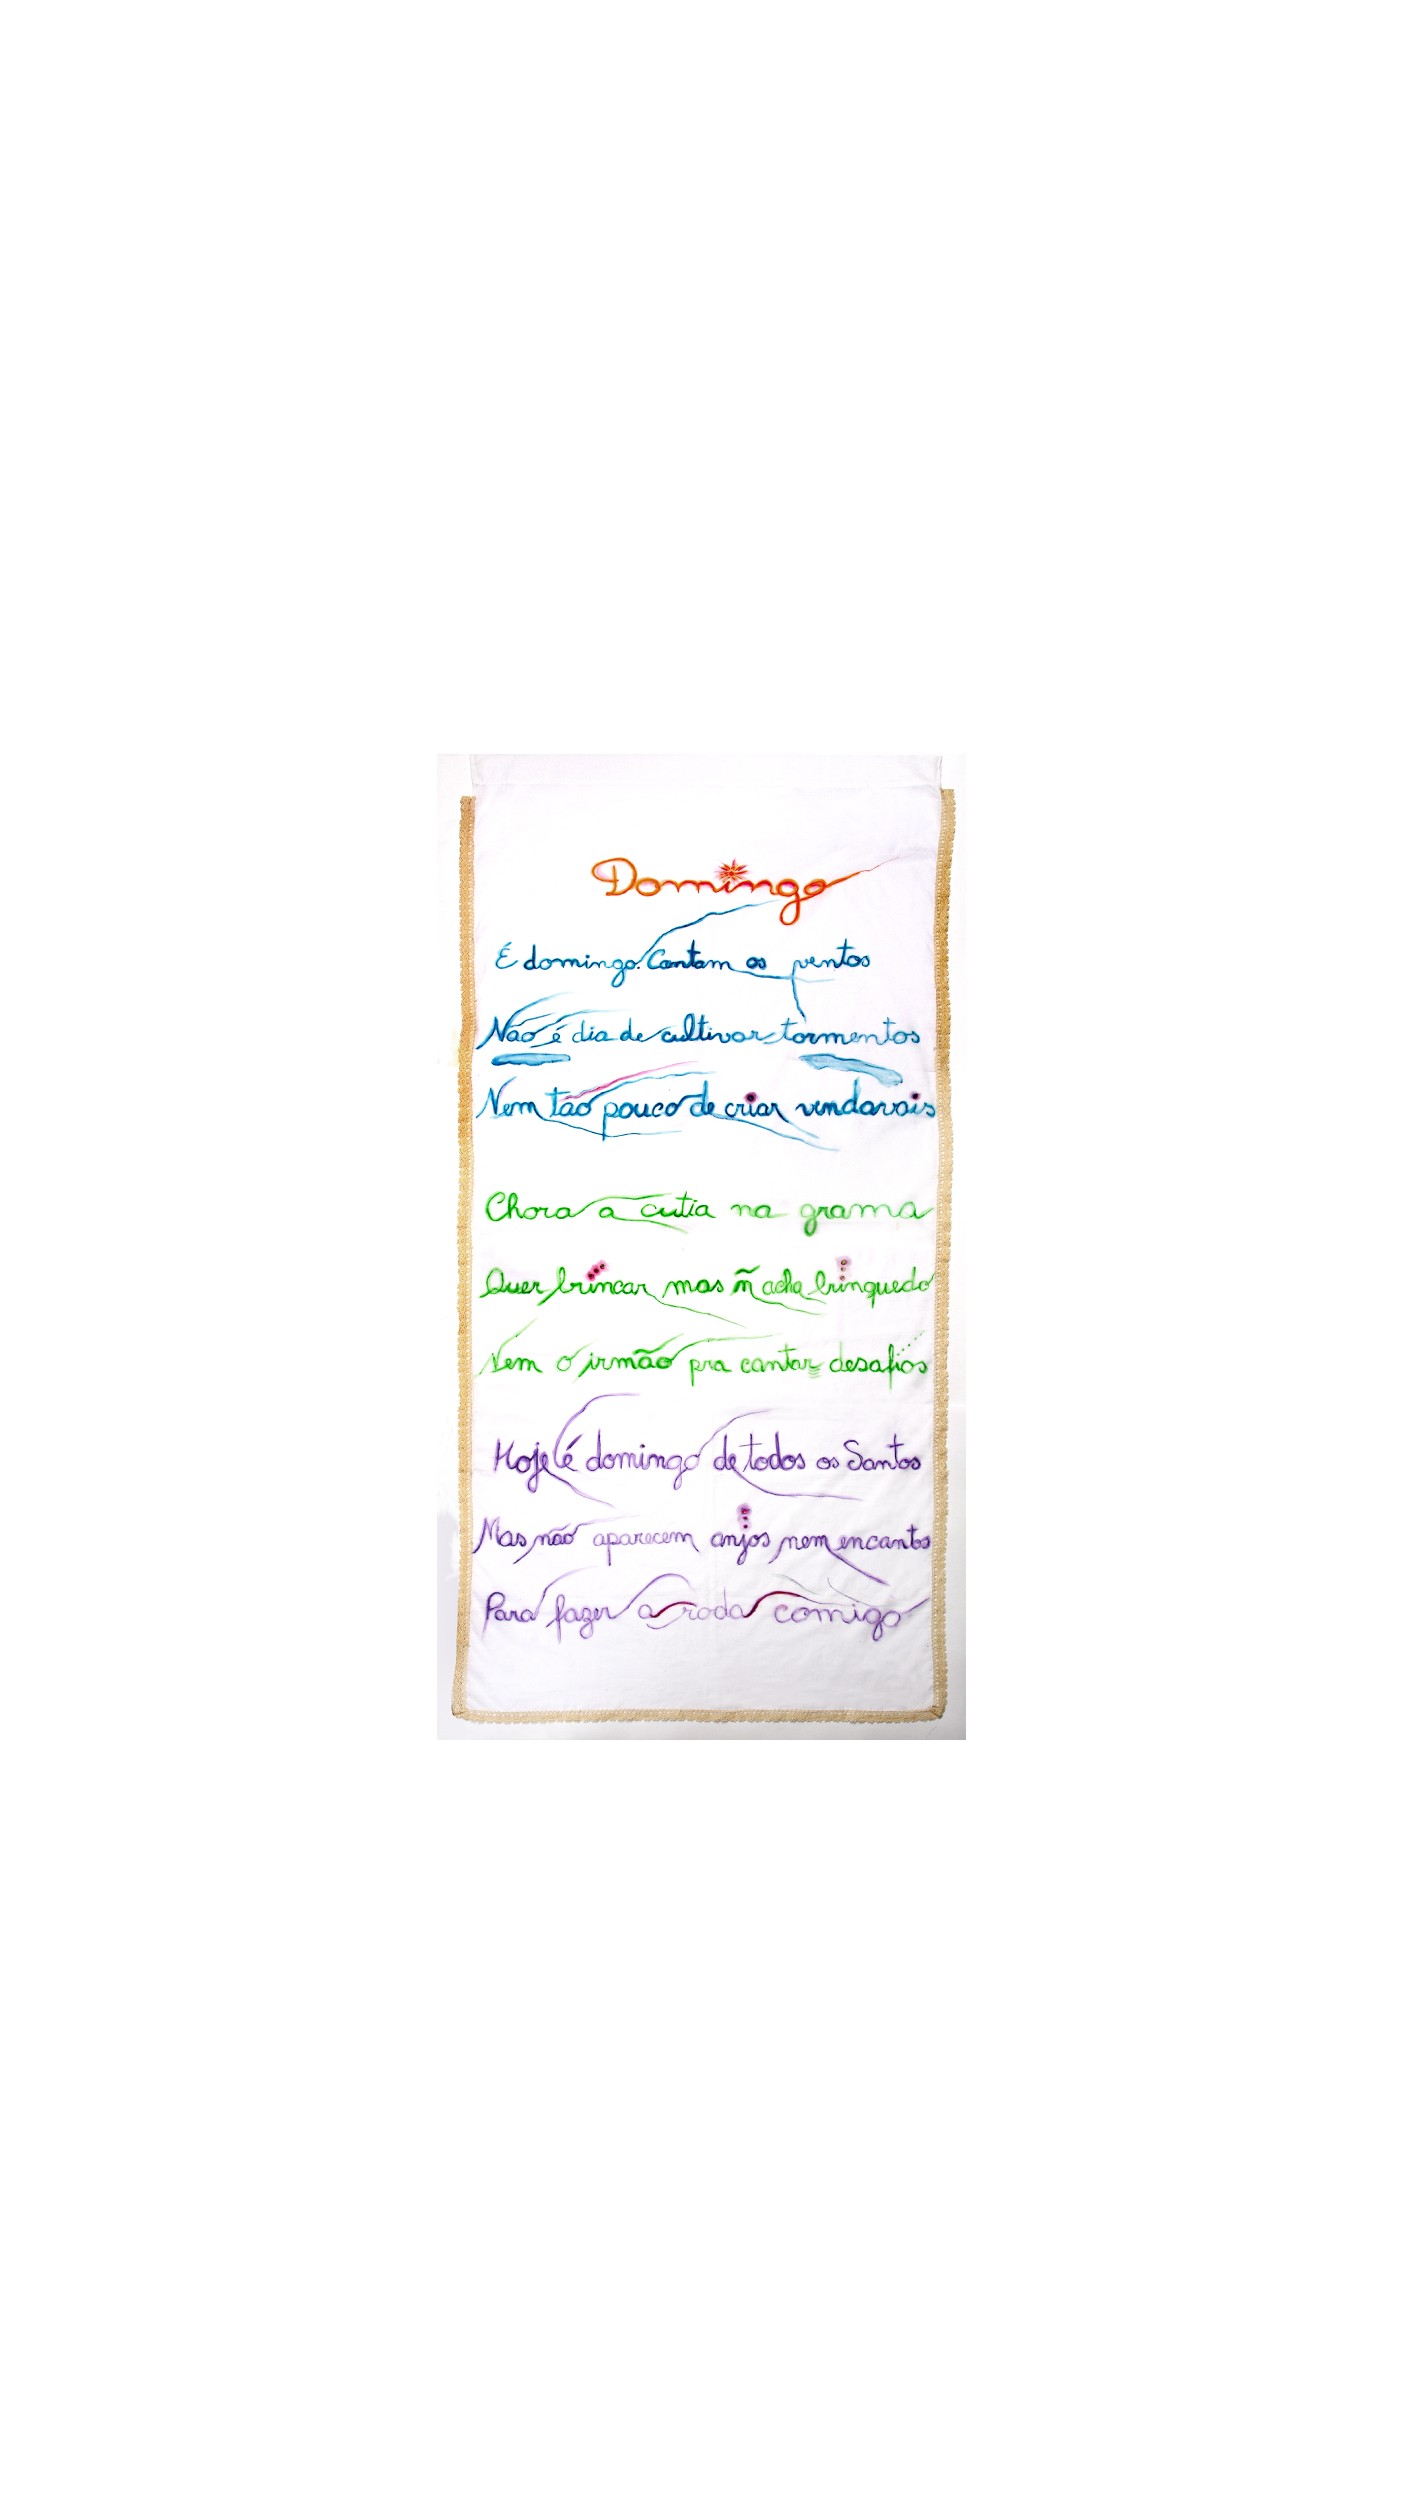 Domingo
É domingo. Cantam os ventos
Não é dia de cultivar tormentos
Nem tão pouco de criar vendavais
Chora a cutia na grama
Quer brincar mas ñ acha brinquedo
Nem o irmão pra cantar desafios
Hoje é domingo de todos os Santos
Mas não aparecem anjos nem encanto
Para fazer a roda comigo